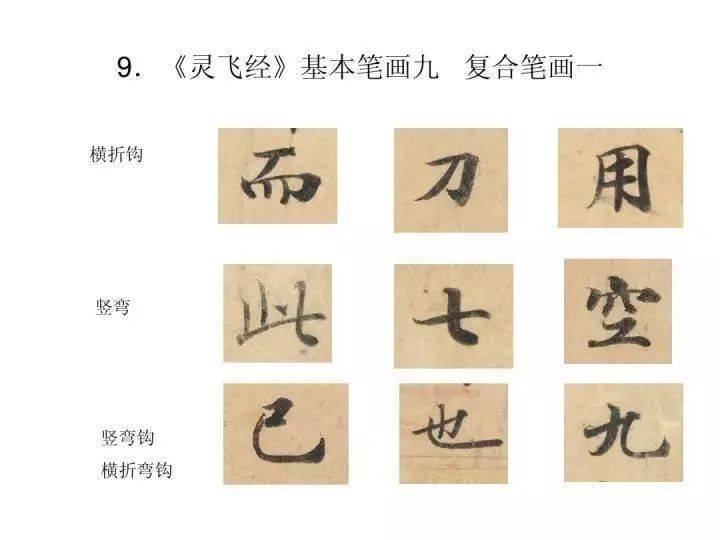 9. 《灵飞经》基本笔画九 复合笔画一
横折钩 而 刀 用
竖弯 此 七 空
已 也 九
竖弯钩
横折弯钩